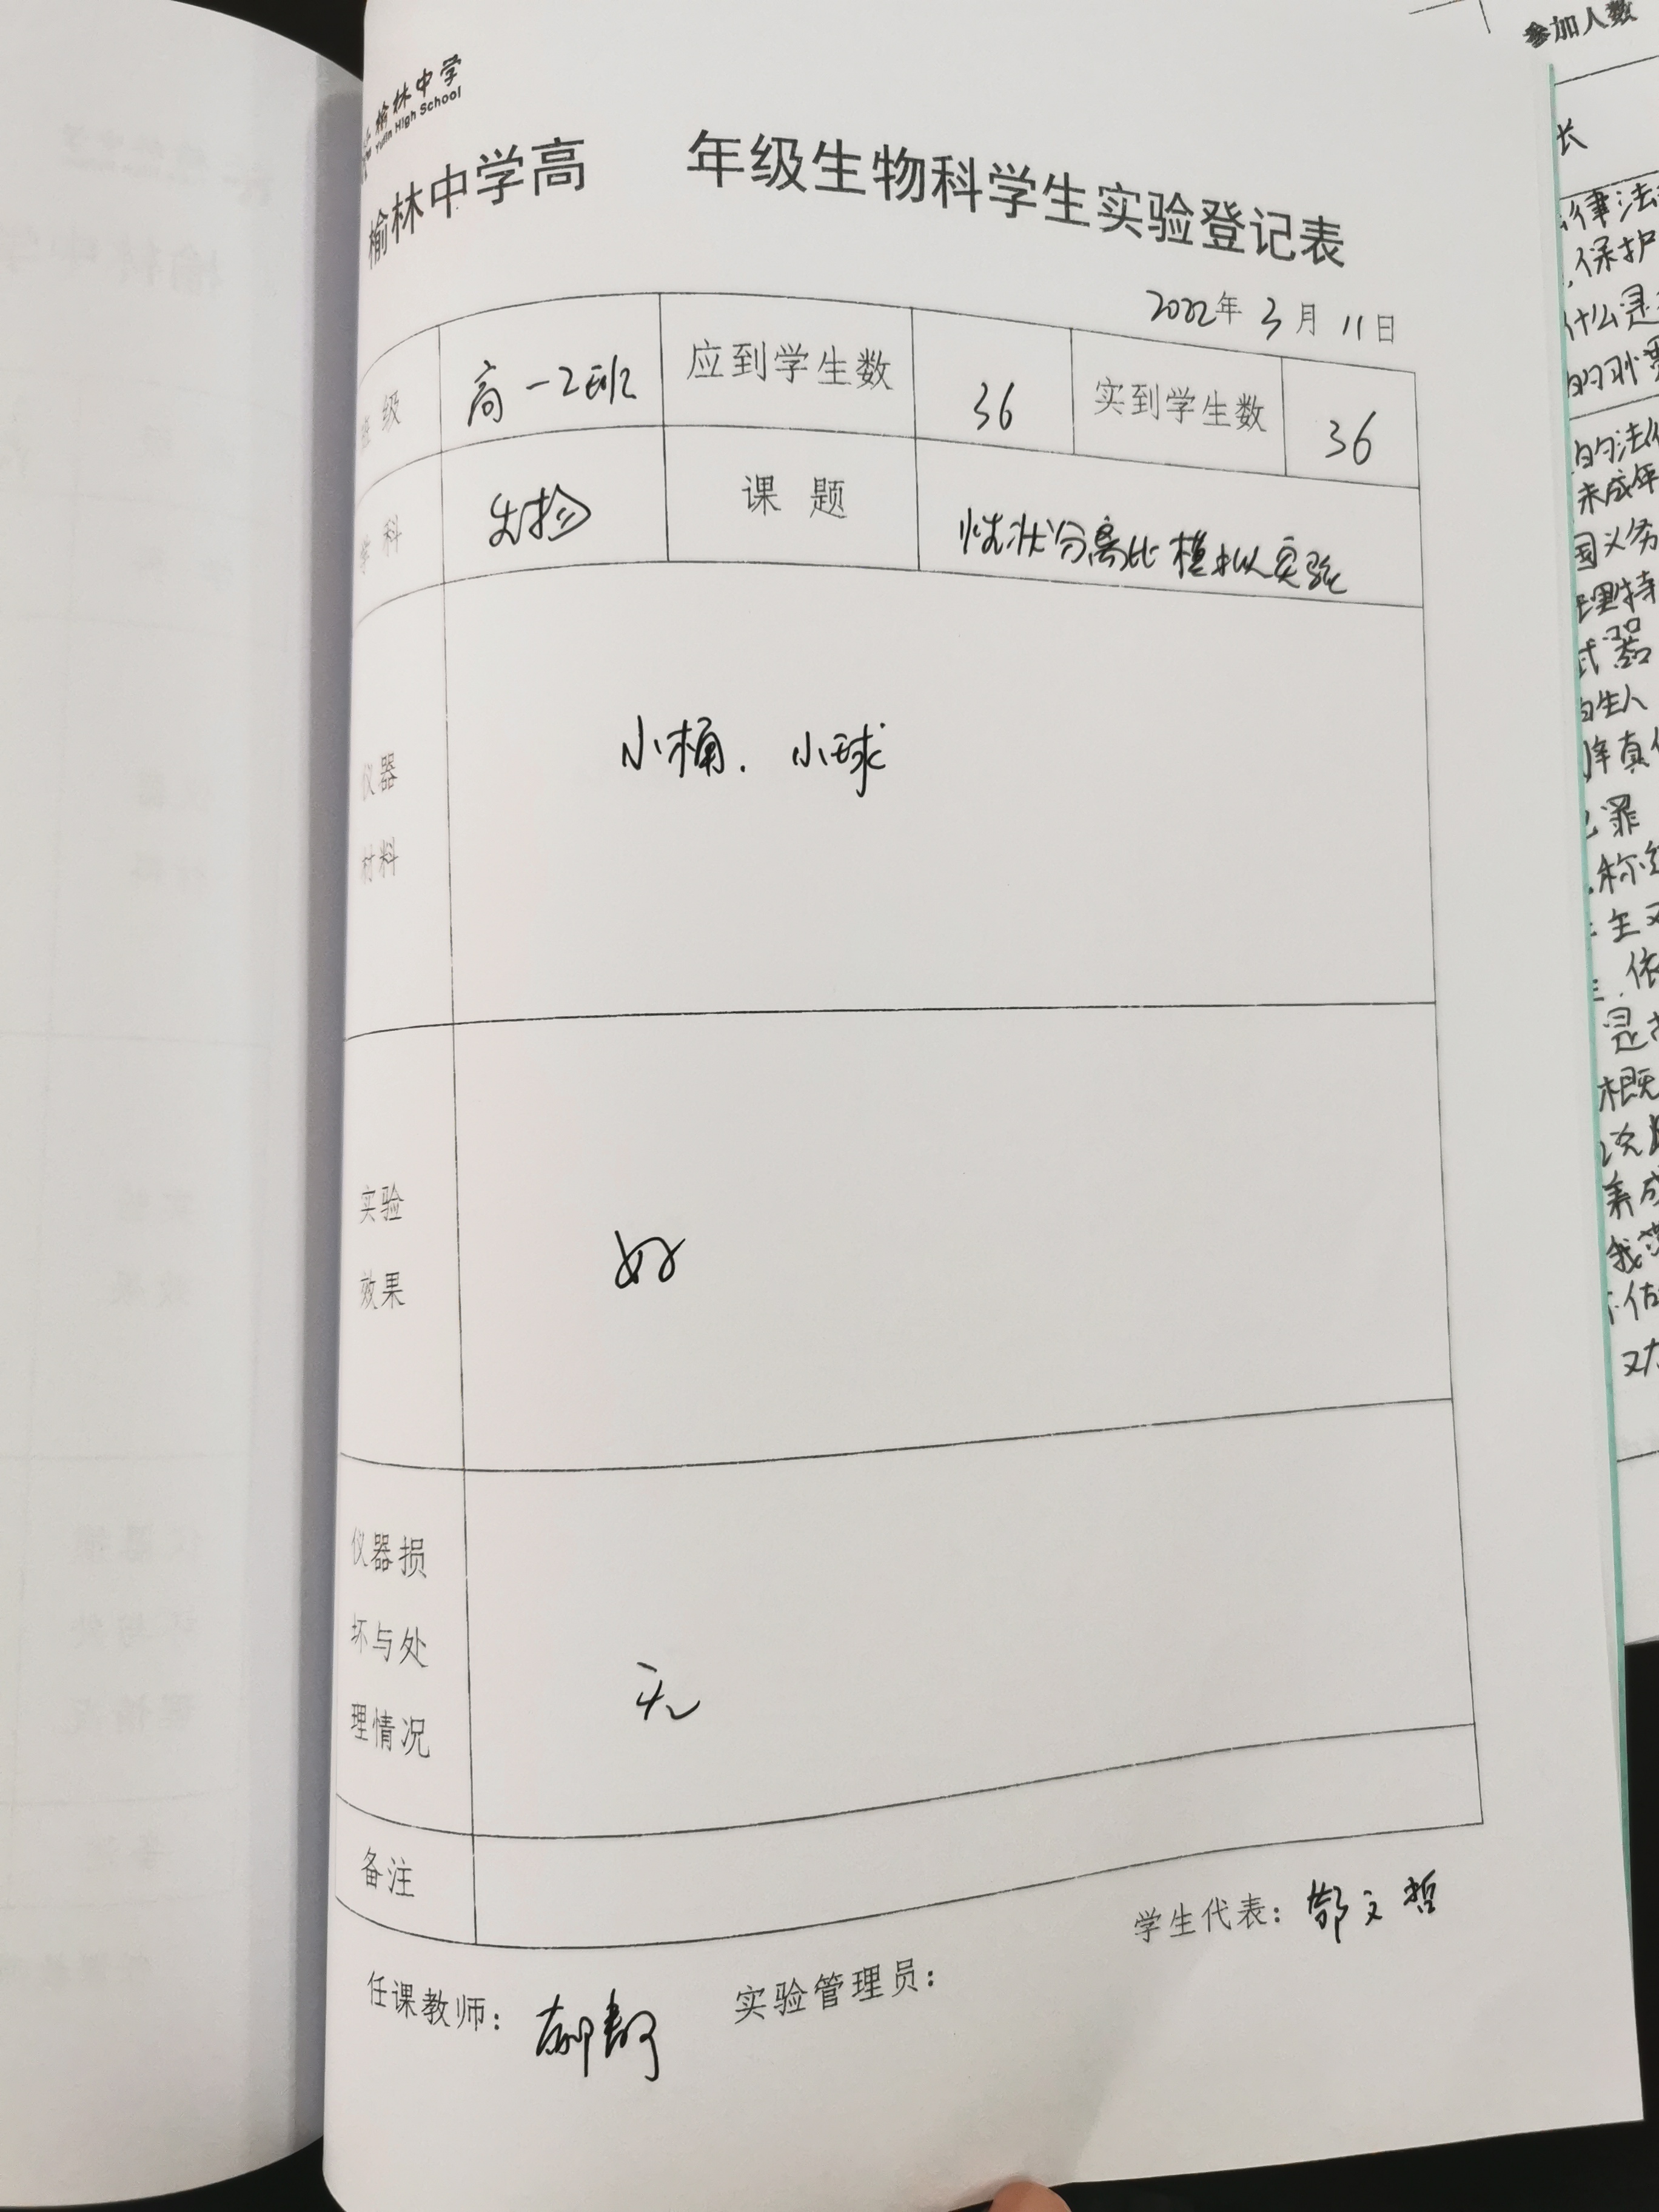 榆林中学
Yulin High School
榆林中学高 年级生物科学生实验登记表
2022年 3月 11日
班级 高一2班 应到学生数 36 实到学生数 36
学科 生物 课题 性状分离比模拟实验
仪器
材料
小桶. 小球
实验
效果
好
仪器损
坏与处
理情况
无
备注
学生代表: 郜文哲
任课教师: 实验管理员:
参加人数
长
律法
保护
什么是
的法
未成年
国义务
理特
式器
生人
真
罪
称
主
依
是
概
我